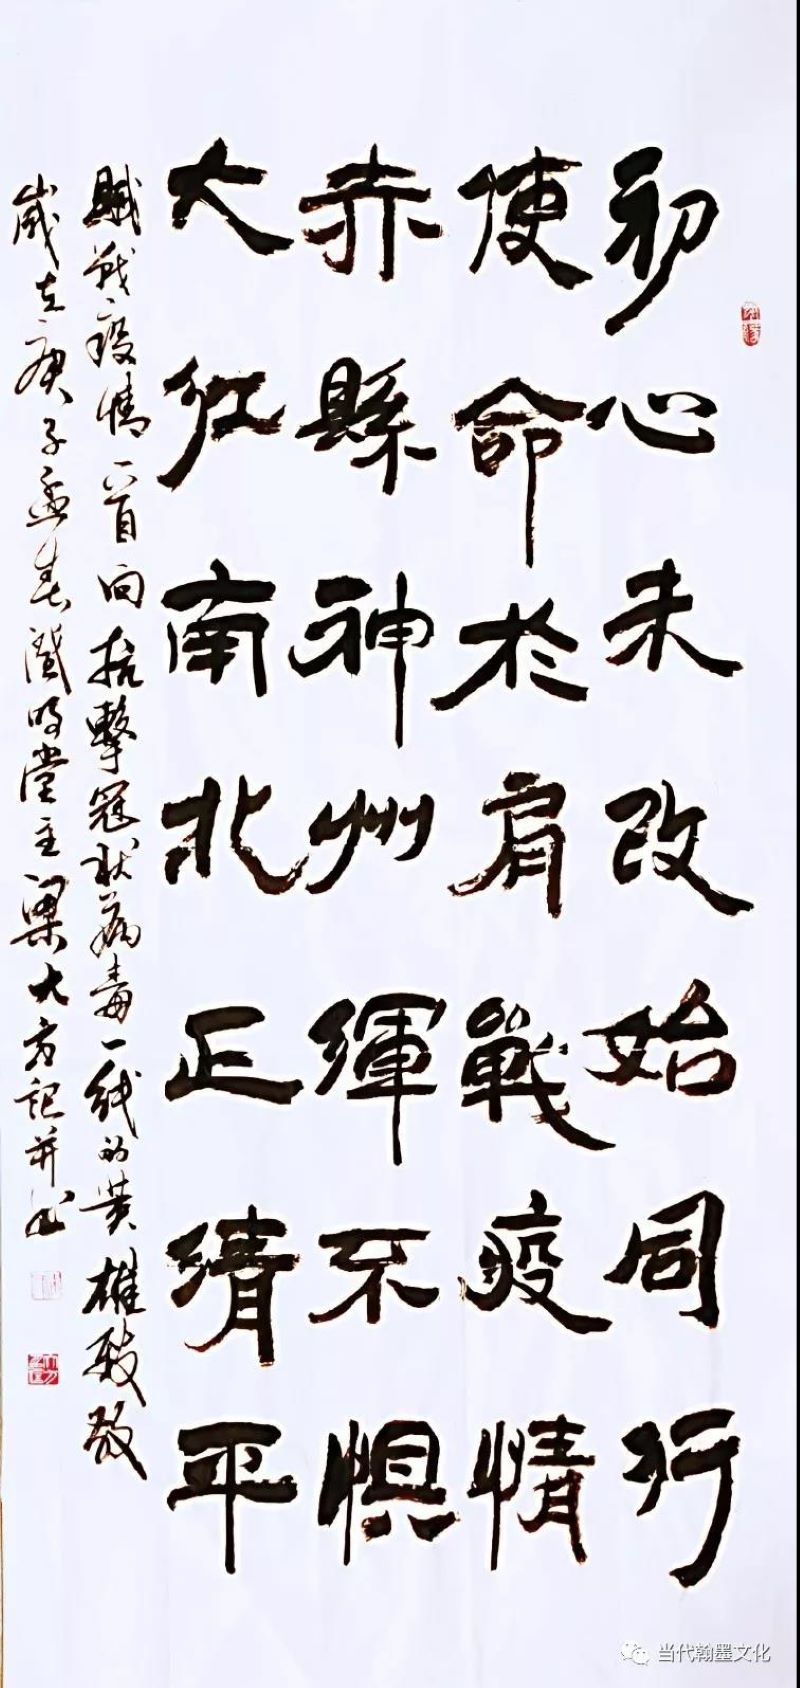 初心未改始同行
使命於肩戰疫情
赤縣神州渾不惧
大红南北正清平
赋战疫情一首向抗擊冠状病毒一线的英雄致敬
歲在庚子孟春 時堂主梁大方記并书
当代翰墨文化